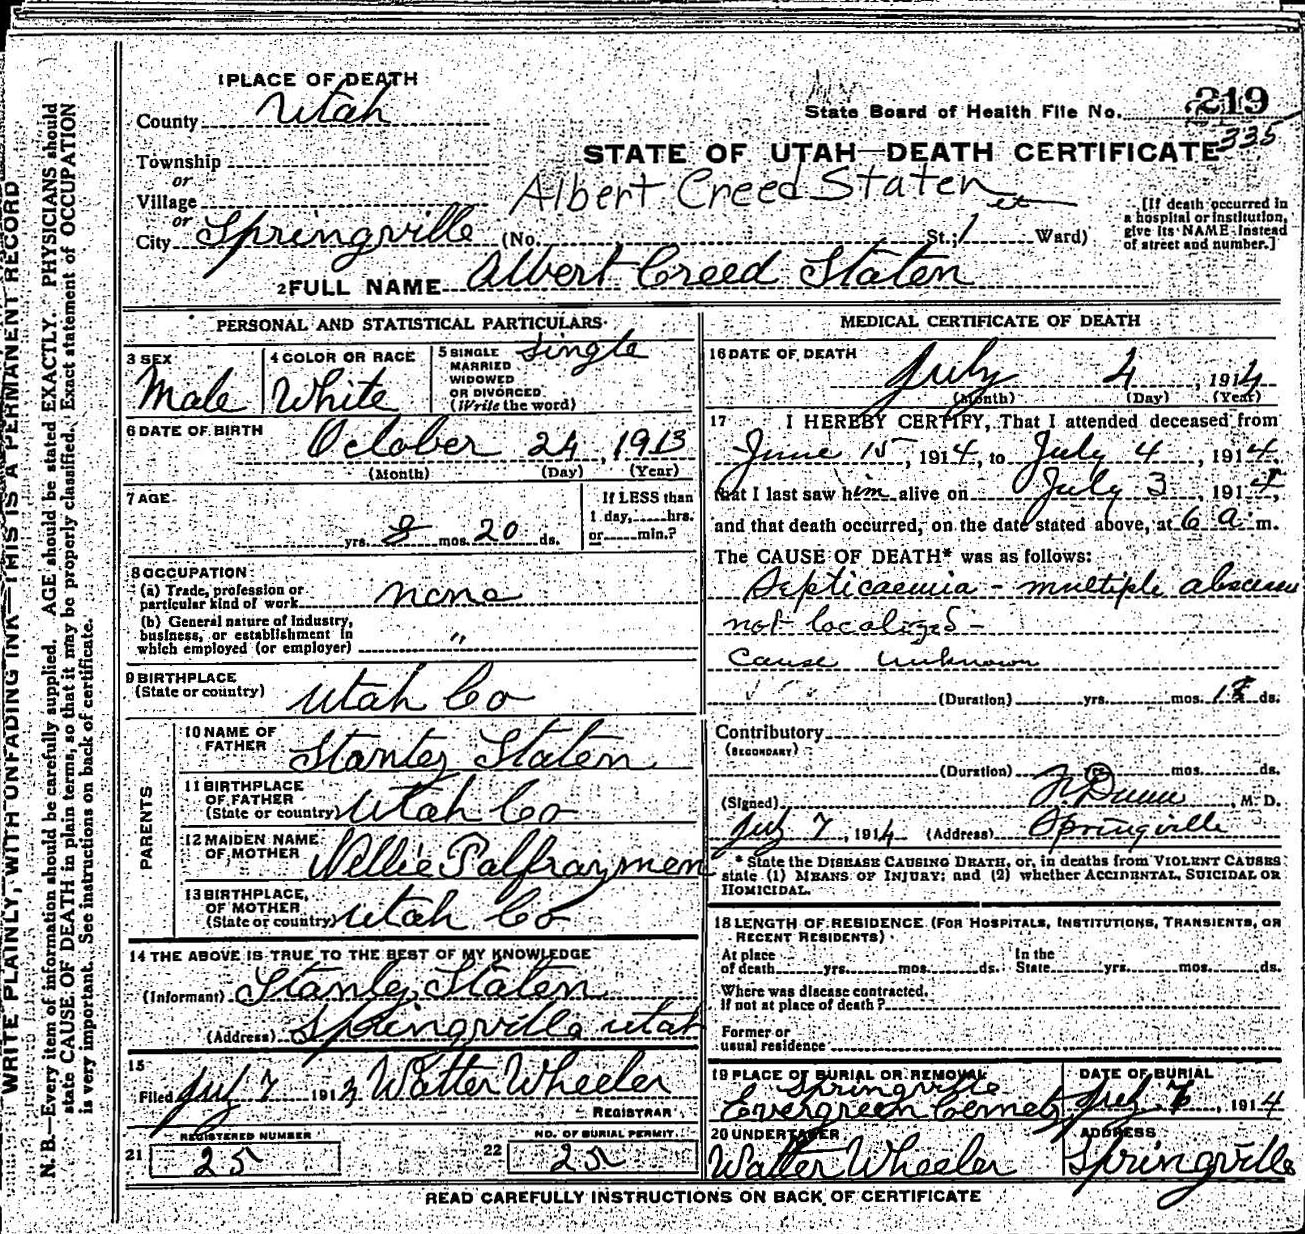 1 PLACE OF DEATH
County Utah
Township
or
Village
or
City Springville (No. St.; 1 Ward)
State Board of Health File No. 219
335
STATE OF UTAH—DEATH CERTIFICATE
Albert Creed Staten
[If death occurred in
a hospital or institution,
give its NAME instead
of street and number.]
2 FULL NAME Albert Creed Staten
PERSONAL AND STATISTICAL PARTICULARS
3 SEX
Male
4 COLOR OR RACE
White
5 SINGLE
MARRIED
WIDOWED
OR DIVORCED
(Write the word)
Single
6 DATE OF BIRTH
October 24, 1913
(Month) (Day) (Year)
7 AGE
yrs. 8 mos. 20 ds.
If LESS than
1 day, hrs.
or min.?
8 OCCUPATION
(a) Trade, profession or
particular kind of work none
(b) General nature of industry,
business, or establishment in
which employed (or employer) "
9 BIRTHPLACE
(State or country) Utah Co
PARENTS
10 NAME OF
FATHER Stanley Staten
11 BIRTHPLACE
OF FATHER
(State or country) Utah Co
12 MAIDEN NAME
OF MOTHER Nellie Palfraymen
13 BIRTHPLACE
OF MOTHER
(State or country) Utah Co
14 THE ABOVE IS TRUE TO THE BEST OF MY KNOWLEDGE
(Informant) Stanley Staten
(Address) Springville Utah
15
Filed July 7 191 Walter Wheeler
REGISTRAR
21 REGISTERED NUMBER
25
22 NO. OF BURIAL PERMIT
25
MEDICAL CERTIFICATE OF DEATH
16 DATE OF DEATH
July 4, 1914
(Month) (Day) (Year)
17 I HEREBY CERTIFY, That I attended deceased from
June 15, 1914, to July 4, 1914,
that I last saw him alive on July 3, 1914,
and that death occurred, on the date stated above, at 6 a m.
The CAUSE OF DEATH* was as follows:
Septicaemia - multiple abscess
not localized -
Cause unknown
(Duration) yrs. mos. ds.
Contributory
(SECONDARY)
(Duration) yrs. mos. ds.
(Signed) Dunn, M. D.
July 7, 1914 (Address) Springville
* State the DISEASE CAUSING DEATH, or, in deaths from VIOLENT CAUSES
state (1) MEANS OF INJURY; and (2) whether ACCIDENTAL, SUICIDAL OR
HOMICIDAL.
18 LENGTH OF RESIDENCE (FOR HOSPITALS, INSTITUTIONS, TRANSIENTS, OR
RECENT RESIDENTS)
At place
of death yrs. mos. ds.
In the
State yrs. mos. ds.
Where was disease contracted,
if not at place of death?
Former or
usual residence
19 PLACE OF BURIAL OR REMOVAL
Springville
Evergreen Cemety
DATE OF BURIAL
July 7, 1914
20 UNDERTAKER
Walter Wheeler
ADDRESS
Springville
READ CAREFULLY INSTRUCTIONS ON BACK OF CERTIFICATE
WRITE PLAINLY, WITH UNFADING INK—THIS IS A PERMANENT RECORD
N. B.—Every item of information should be carefully supplied. AGE should be stated EXACTLY. PHYSICIANS should
state CAUSE OF DEATH in plain terms, so that it may be properly classified. Exact statement of OCCUPATION
is very important. See instructions on back of certificate.